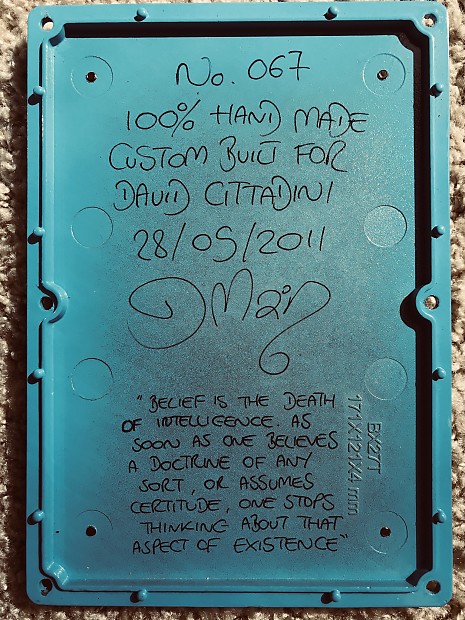 No. 067
100% HAND MADE
CUSTOM BUILT FOR
DAVID CITTADINI
28/05/2011
"BELIEF IS THE DEATH
OF INTELLIGENCE. AS
SOON AS ONE BELIEVES
A DOCTRINE OF ANY
SORT, OR ASSUMES
CERTITUDE, ONE STOPS
THINKING ABOUT THAT
ASPECT OF EXISTENCE"
BX2TT
171X121X4 mm